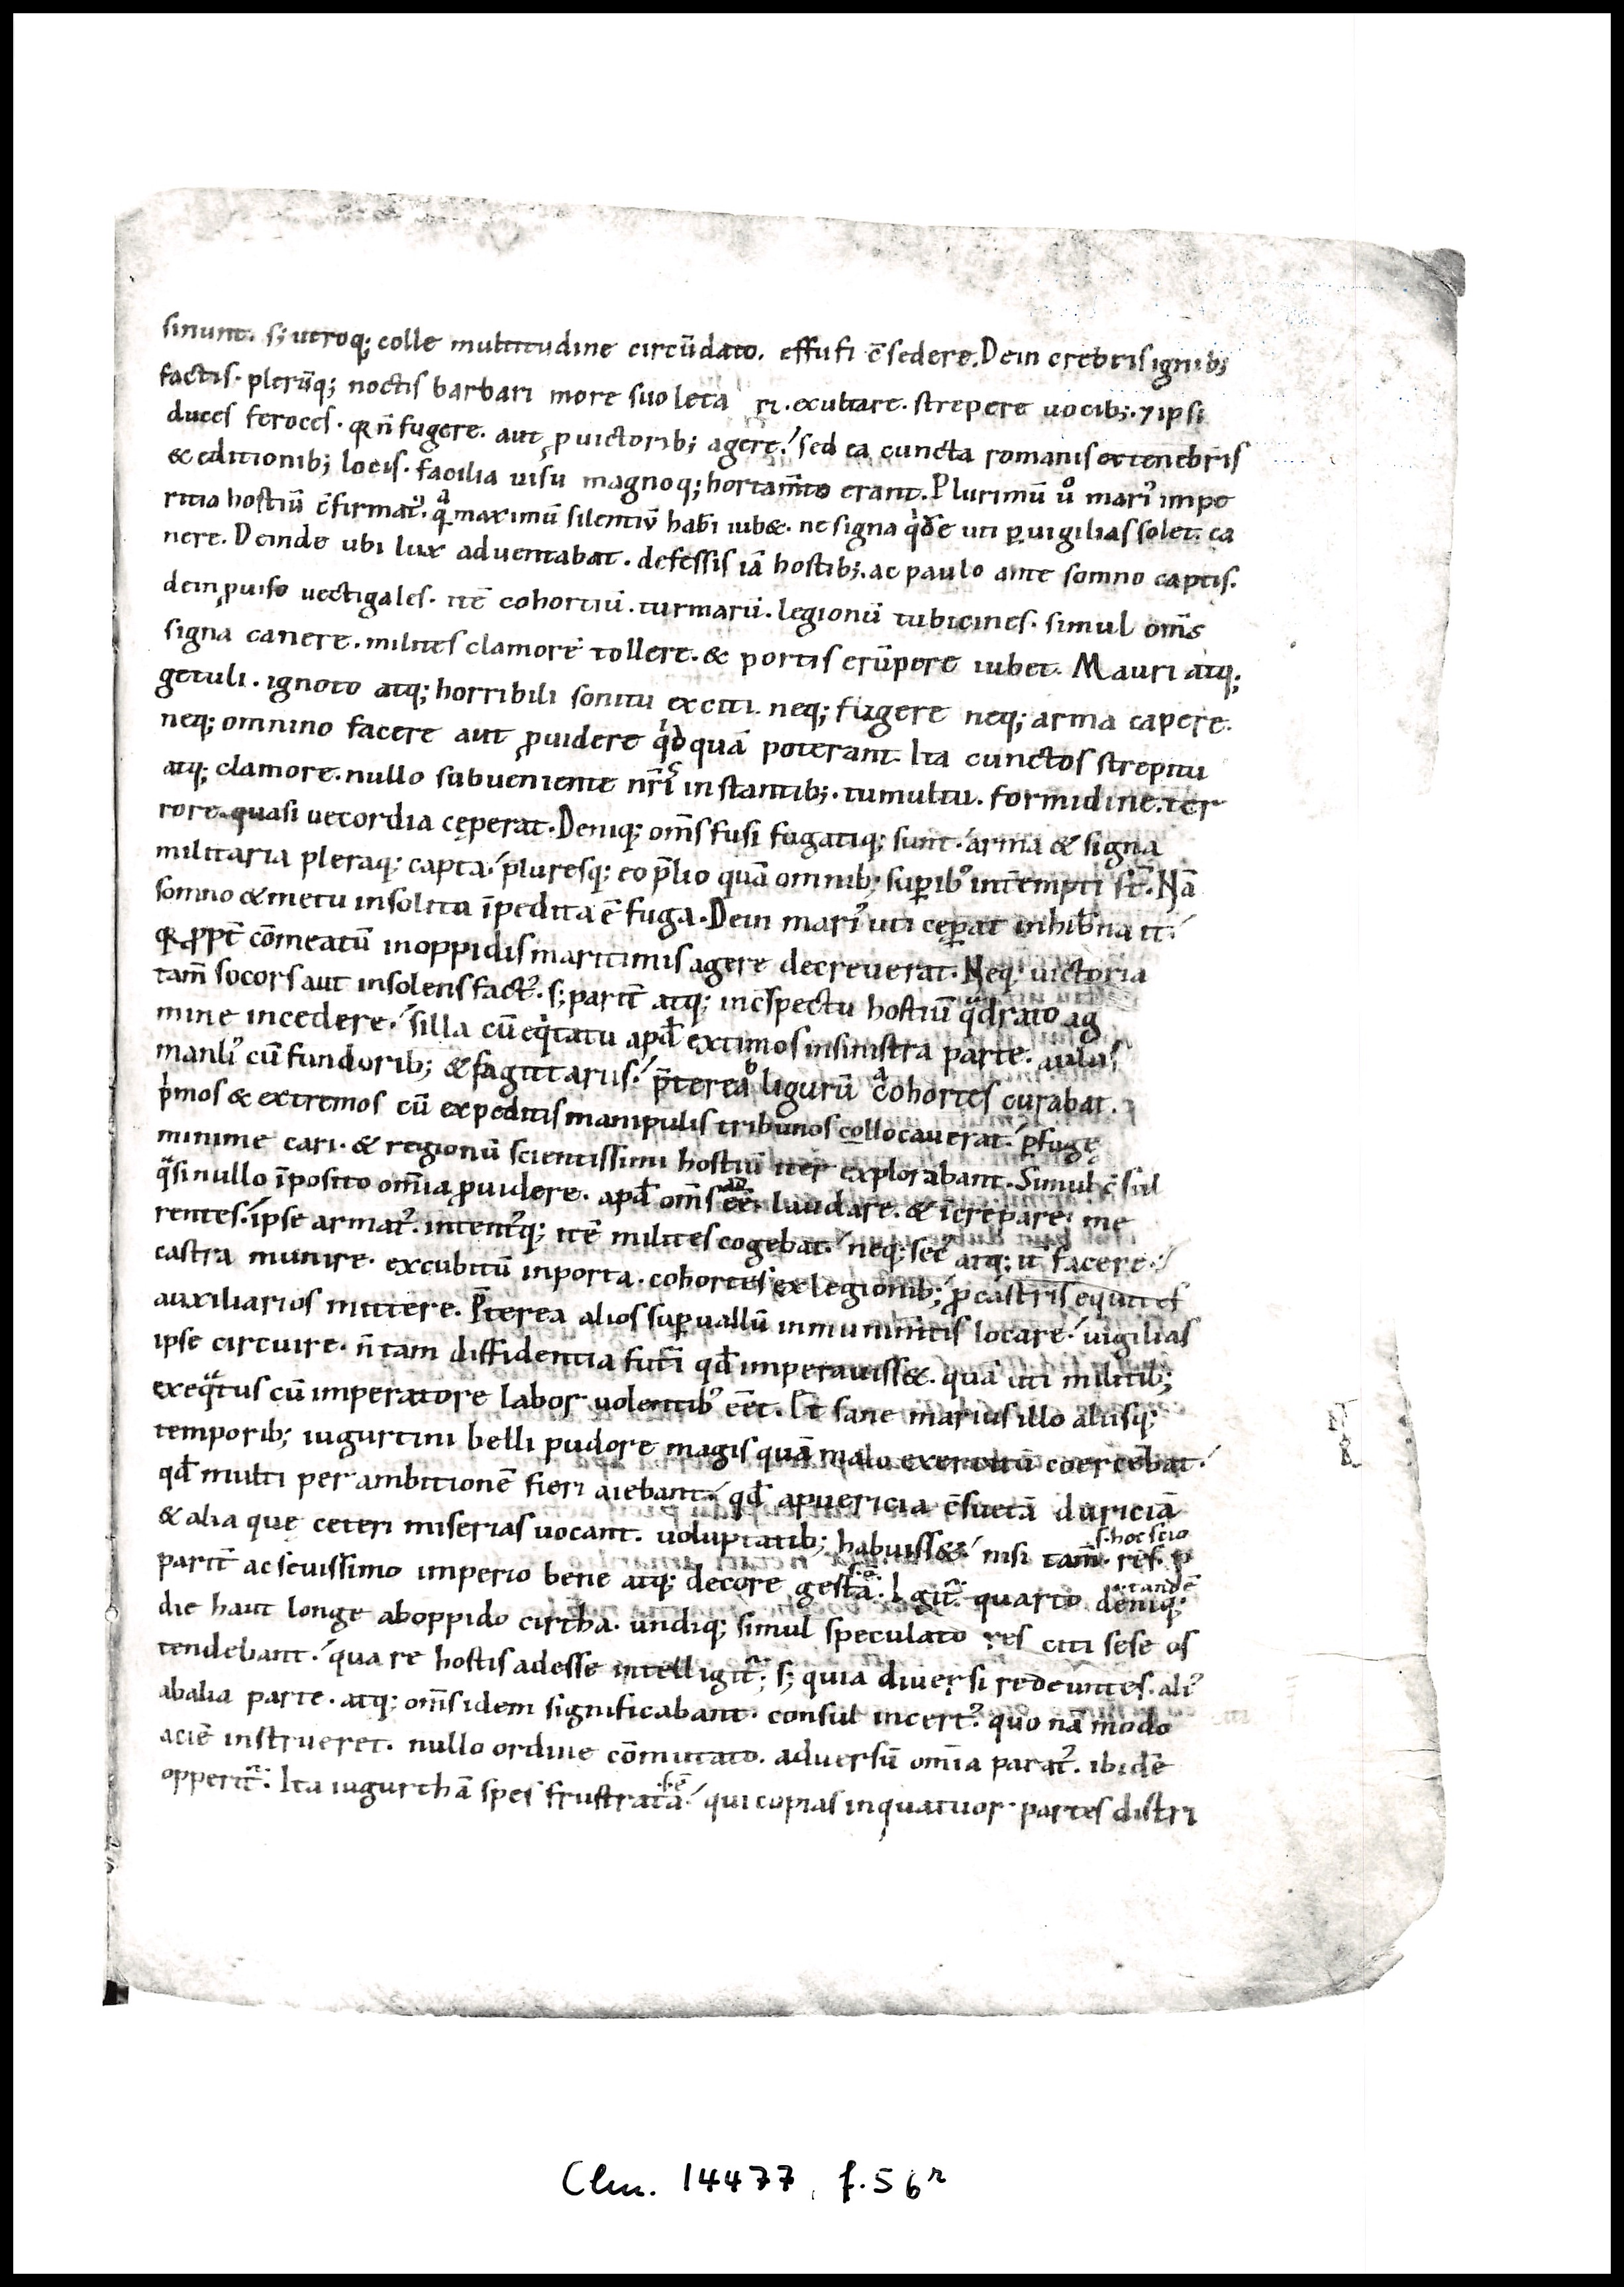 sinunt. s; utroq; colle multitudine circūdato. effusi c̄sedere. Dein crebris ignib;
factis. plerūq; noctis barbari more suo leta ri. exultare. strepere uocib;. ⁊ ipsi
duces feroces. qͥ n̄ fugere. aut ꝓ uictorib; agere. sed ea cuncta romanis ex tenebris
& editionib; locis. facilia uisu magnoq; hortam̄to erant. Plurimū uͦ mariꝰ impe
ritia hostiū c̄firmatꝰ. qͣ maximū silentiū hab̄i iub&. ne signa qͥdē uti ꝑ uigilias solet. ca
nere. Deinde ubi lux aduentabat. defessis iā hostib;. ac paulo ante somno captis.
de inꝓuiso uectigales. itē cohortiū. turmarū. legionū tubicines. simul om̄s
signa canere. milites clamorē tollere. & portis erūpere iubet. Mauri atq;
getuli. ignoto atq; horribili sonitu exciti. neq; fugere neq; arma capere.
neq; omnino facere aut ꝓuidere qͥdquā poterant. Ita cunctos strepitu
atq; clamore. nullo subueniente nr̄is instantib;. tumultu. formidine. ter
rore. quasi uecordia cęperat. Deniq; om̄s fusi fugatiq; sunt. arma & signa
militaria pleraq; capta. pluresq; eo p̄lio quā omnib; suꝑibꝰ int̄empti st̄. Nā
somno & metu insolita īpedita ē fuga. Dein mariꝰ uti ceperat inhib̄na it̄.
qͥ ꝓpt̄ cōmeatū in oppidis maritimis agere decreuerat. Neq; uictoria
tam̄ socors aut insolens factꝰ. s; parit̄ atq; in c̄spectu hostiū qͣdrato ag
mine incedere. silla cū eqͥtatu apd̄ extimos in sinistra parte. aulus
manliꝰ cū fundorib; & sagittariis. p̄terea ligurū cohortes curabat.
pͥmos & extremos cū expeditis manipulis tribunos collocauerat. ꝑfugę
minime cari. & regionū scientissimi hostiū iter explorabant. Simul c̄sul
qͣsi nullo īposito om̄ia ꝓuidere. apd̄ om̄s ee. laudare. & īcrepare. me
rentes. ipse armatꝰ. intentꝰq; itē milites cogebat. neq; sec̄ atq; it̄ facere.
castra munire. excubitū in porta. cohortes ex legionib; ꝓ castris equites
auxiliarios mittere. P̄terea alios suꝑ uallū in munim̄tis locare. uigilias
ipse circuire. n̄ tam diffidentia futi qd̄ imperauiss&. quā uti militib;
exeqͣtus cū imperatore labor uolentibꝰ eēt. Et sane marius illo aliisq;
temporib; iugurtini belli pudore magis quā malo exercitū coercebat.
qd̄ multi per ambitionē fieri aiebant. qd̄ a puericia c̄suetā duriciā
& alia que ceteri miserias uocant. uoluptatib; habuiss&. nisi tam̄. s. hoc scio res. p
parit̄ ac seuissimo imperio bene atq; decore gesta. s. ē. Igit̄ quarto deniq; .i. tandē
die haut longe ab oppido cirtha. undiq; simul speculato res citi sese os
tendebant. qua re hostis adesse intelligit̄. s; quia diuersi redeuntes. aliꝰ
ab alia parte. atq; om̄s idem significabant. consul incertꝰ. quo nā modo
aciē instrueret. nullo ordine cōmutato. aduersū om̄ia paratꝰ. ibidē
opperit̄. Ita iugurthā spes frustrata. s. ē qui copias in quatuor partes distri
Clm. 14477, f. 56r